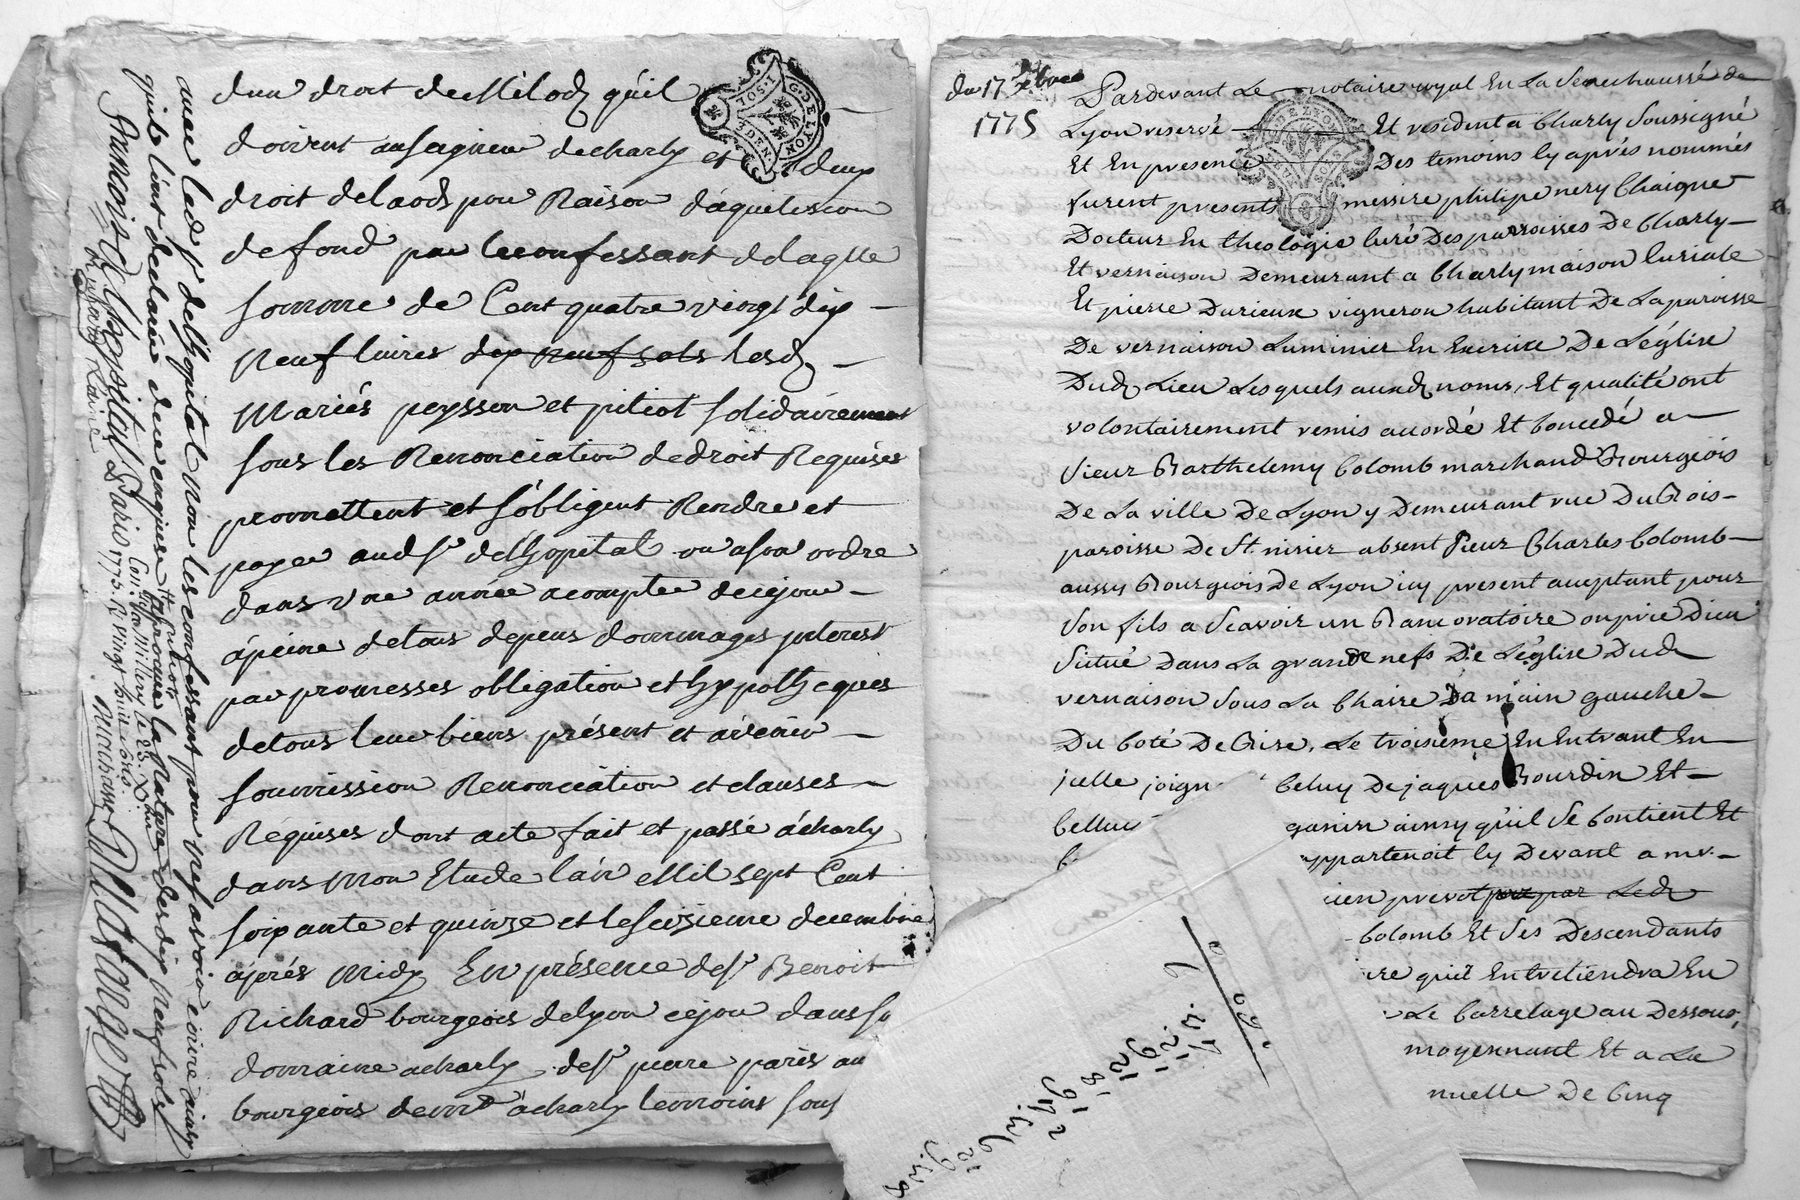 d'un droit de Milod qu'il
doivent au seigneur de charly et deux
droit de laods pour Raison d'aquisicion
de fond par le confessant de laqlle
somme de Cent quatre vingt dix
neuf livres dix neuf sols lesd
Mariés peysson et pitiot solidairement
sous les Renonciation de droit Requises
promettent et s'obligent Rendre et
payer audsr. delhopital ou a son ordre
dans une année a compter de ce jour
à peine de tous depens dommages interest
par promesses obligation et hypotheques
de tous leur biens présent et avenir
soumission Renonciation et clauses
Requises dont acte fait et passé à charly
dans Mon Etude l'an Mil sept Cent
soixante et quinze et le seizieme decembre
après Midy En présence de sr. Benoit
Richard bourgeois de lyon ce jour dans so
domaine a charly de sr. pierre parès au
bourgeois demt. à charly temoins sous
avec led sr. delhopital non les confessant pour ne savoir ecrire ainsy
qu'ils l'ont declaré de ce enquis approuve la rature des dix neuf sols
Con. a Millery le 23. Xbre
1775. R vingt huit sols.
G. DE LYON
2 SOLS.
DEN.
du 17 xbre
1775
Pardevant Le notaire royal En La Senechaussé de
Lyon reservé Et resident a Charly Soussigné
Et En presence Des temoins Cy après nommés
furent presents messire philipe nery Chaigne
Docteur En theologie Curé Des parroisses De Charly
Et vernaison Demeurant a Charly maison Curiale
Et pierre Durieux vigneron habitant De La paroisse
De vernaison Luminier En Exercice De L'église
Dud Lieu Lesquels auxd noms, Et qualité ont
volontairement remis accordé Et Concedé a
Sieur Barthelemy Colomb marchand Bourgeois
De La ville De Lyon y Demeurant rue Du Bois
paroisse De St nizier absent Sieur Charles Colomb
aussy Bourgeois De Lyon icy present acceptant pour
Son fils a Scavoir un Banc oratoire ou prie Dieu
Situé Dans La grande nefs De L'église Dud
vernaison Sous La Chaire Da main gauche
Du Coté De Bise, Le troisieme En Entrant En
icelle joign Celuy De jaques Bourdin Et
Celluy ganin ainsy qu'il Se Contient Et
appartenoit Cy Devant a mr.
ien prevot par Led
Colomb Et Ses Descendants
re qu'il Entretiendra En
Le Carrelage au Dessous,
moyennant Et a La
nuelle De Cinq